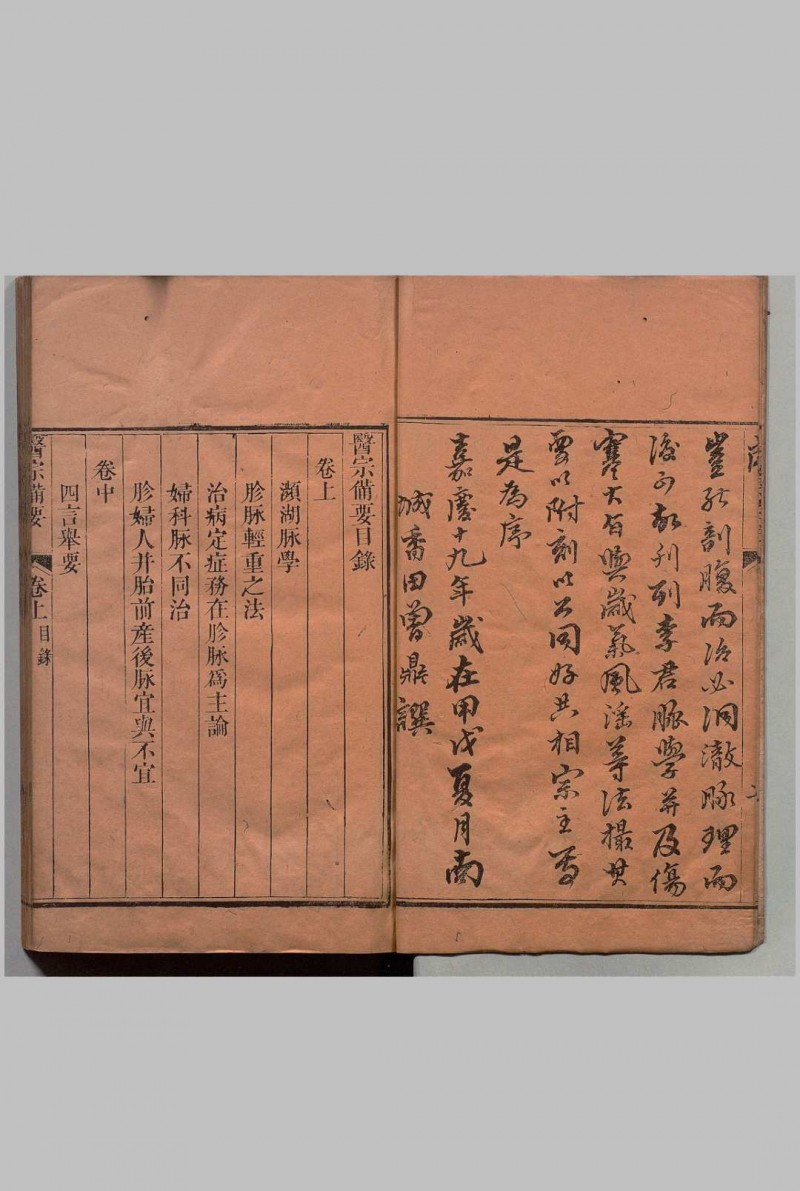 豈能剖腹而治必洞澈脉理而
後可故刊列李君脉學并及傷
寒大旨與歲氣風溫等法撮其
要以附刻以公同好共相宗主焉
是為序
嘉慶十九年歲在甲戌夏月南
城香田曾鼎譔
醫宗備要目錄
卷上
瀕湖脉學
胗脉輕重之法
治病定症務在胗脉為主論
婦科脉不同治
胗婦人并胎前産後脉宜與不宜
卷中
四言舉要
醫宗備要
卷上
目錄